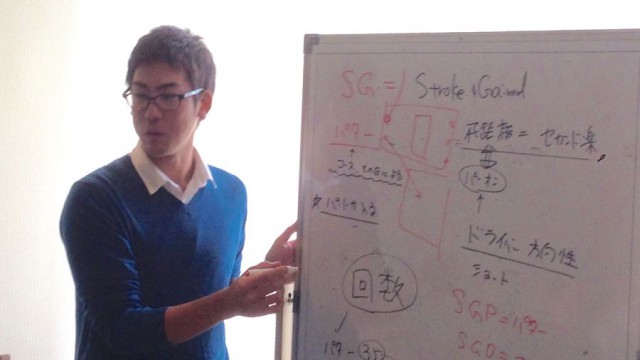 SG = Stroke Gained
パター
飛距離 = セカンド楽
コース、その日による
パーオン
パットが入る
ドライバー 方向性
ショット
回数
SGP = パター
パター 35